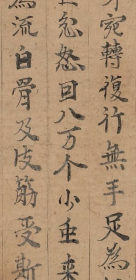 宛轉復行無手足為
忿怒回八万个小虫来
流白骨及皮筋受斯